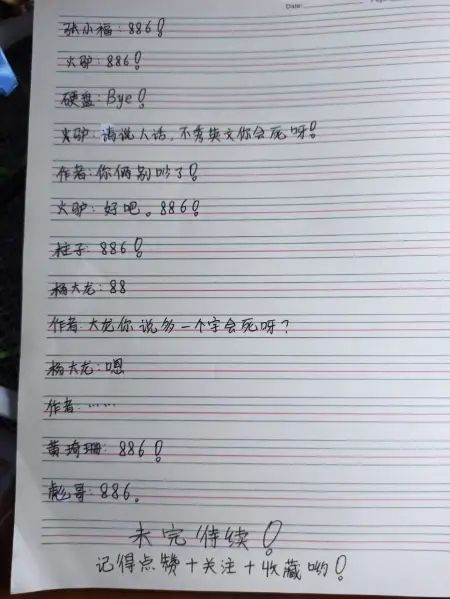 Date:
张小福：886！
火驴：886！
硬盘：Bye！
火驴：请说人话，不秀英文你会死呀！
作者：你俩别吵了！
火驴：好吧。886！
柱子：886！
杨大龙：88
作者：大龙你说多一个字会死呀？
杨大龙：嗯
作者：……
黄琦珊：886！
彪哥：886。
未完待续！
记得点赞＋关注＋收藏哟！